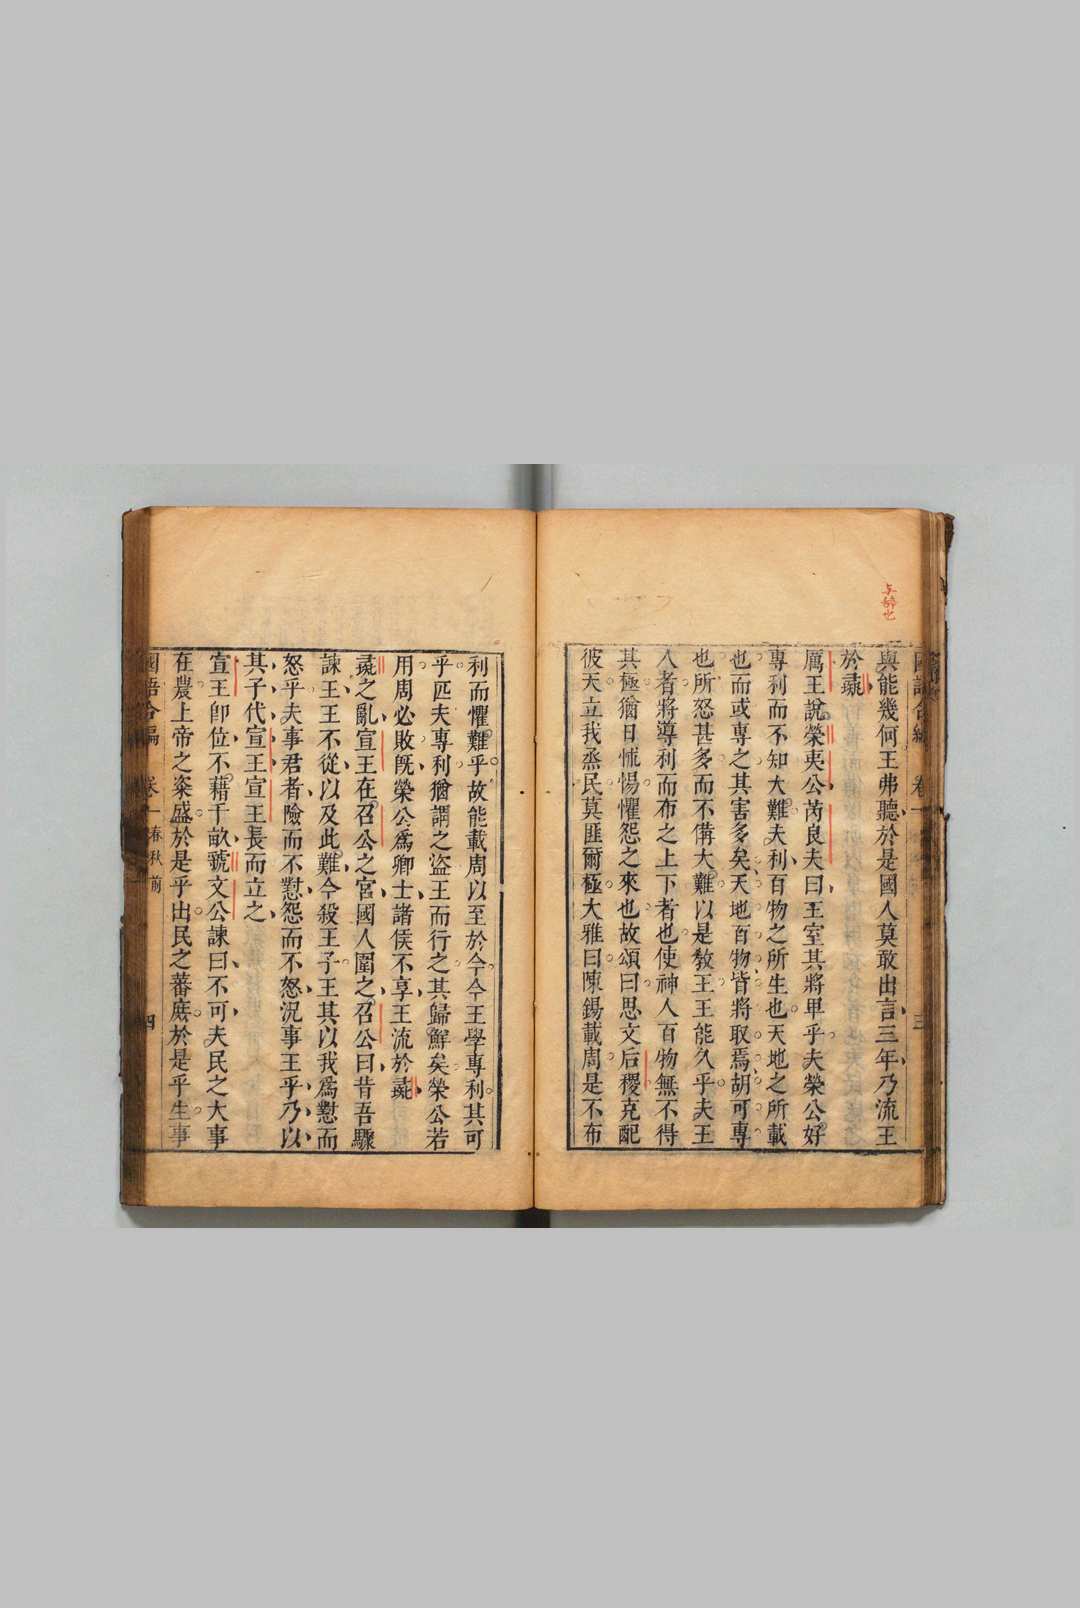 與能幾何王弗聽於是國人莫敢出言三年乃流王
於彘
厲王說榮夷公芮良夫曰王室其將卑乎夫榮公好
專利而不知大難夫利百物之所生也天地之所載
也而或專之其害多矣天地百物皆將取焉胡可專
也所怒甚多而不備大難以是敎王王能久乎夫王
人者將導利而布之上下者也使神人百物無不得
其極猶日怵惕懼怨之來也故頌曰思文后稷克配
彼天立我烝民莫匪爾極大雅曰陳錫載周是不布
利而懼難乎故能載周以至於今今王學專利其可
乎匹夫專利猶謂之盜王而行之其歸鮮矣榮公若
用周必敗旣榮公爲卿士諸侯不享王流於彘
彘之亂宣王在召公之宮國人圍之召公曰昔吾驟
諫王王不從以及此難今殺王子王其以我爲懟而
怒乎夫事君者險而不懟怨而不怒況事王乎乃以
其子代宣王宣王長而立之
宣王卽位不藉千畝虢文公諫曰不可夫民之大事
在農上帝之粢盛於是乎出民之蕃庶於是乎生事
國語合編 卷一 春秋前 四